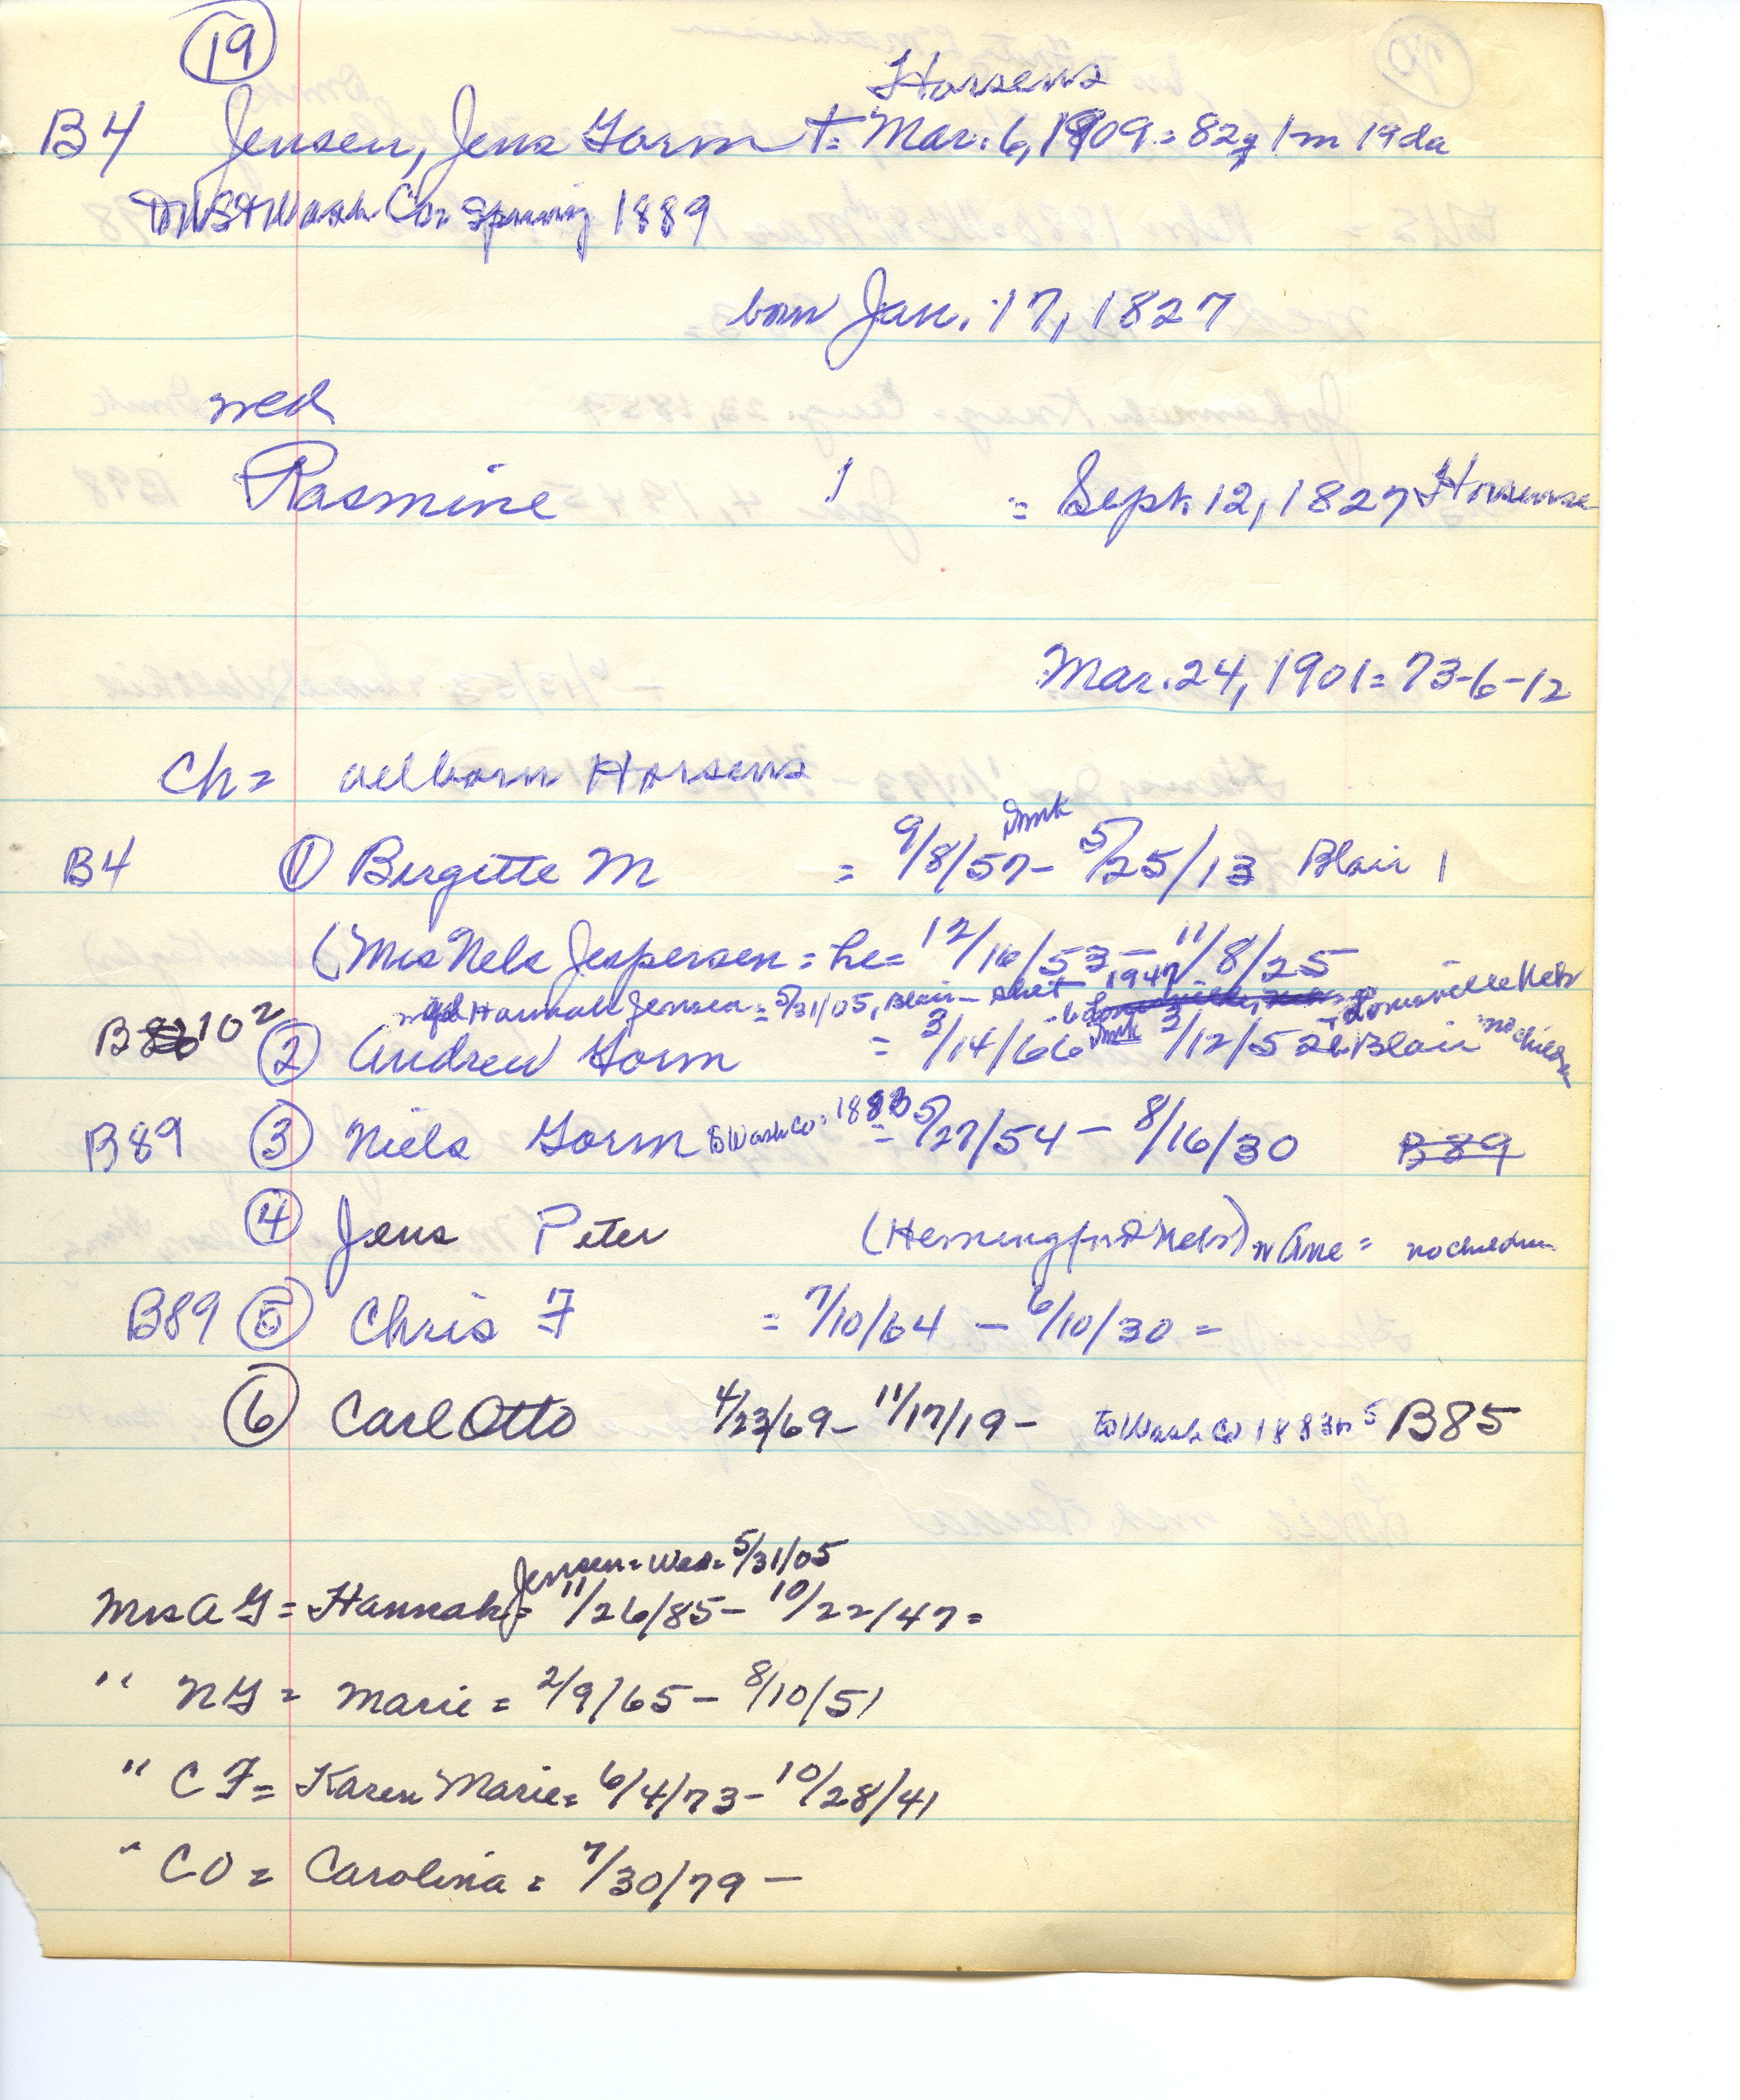 19
Horsens
B4 Jensen, Jens Gorm t= Mar. 6, 1909 = 82y 1m 19da
Wash Co = Spring 1889
born Jan. 17, 1827
wed
Rasmine 1 = Sept. 12, 1827
Mar. 24, 1901 = 73-6-12
Ch = all born Horsens
B4 ① Birgitte M = 9/8/57 Dmk - 5/25/13 Blair 1
(Mrs Nels Jespersen = he = 12/16/53 - 11/8/25
wed Hannah Jensen = 5/31/05, Blair - she t 1947 Louisville Nebr
B 102 ② Andrew Gorm = 3/14/66 Dmk 3/12/52 Blair no children
B89 ③ Niels Gorm to Wash Co = 1883 = 5/27/54 - 8/16/30 B89
④ Jens Peter (Hemingford Nebr) w Ane = no children
B89 ⑤ Chris F = 7/10/64 - 6/10/30 =
⑥ Carl Otto 4/23/69 - 11/17/19 - to Wash Co 1883 5 B85
Jensen = Wed = 5/31/05
Mrs A G = Hannah = 11/26/85 - 10/22/47 =
" N G = Marie = 2/9/65 - 8/10/51
" C F = Karen Marie = 6/4/73 - 10/28/41
" C O = Carolina = 7/30/79 -